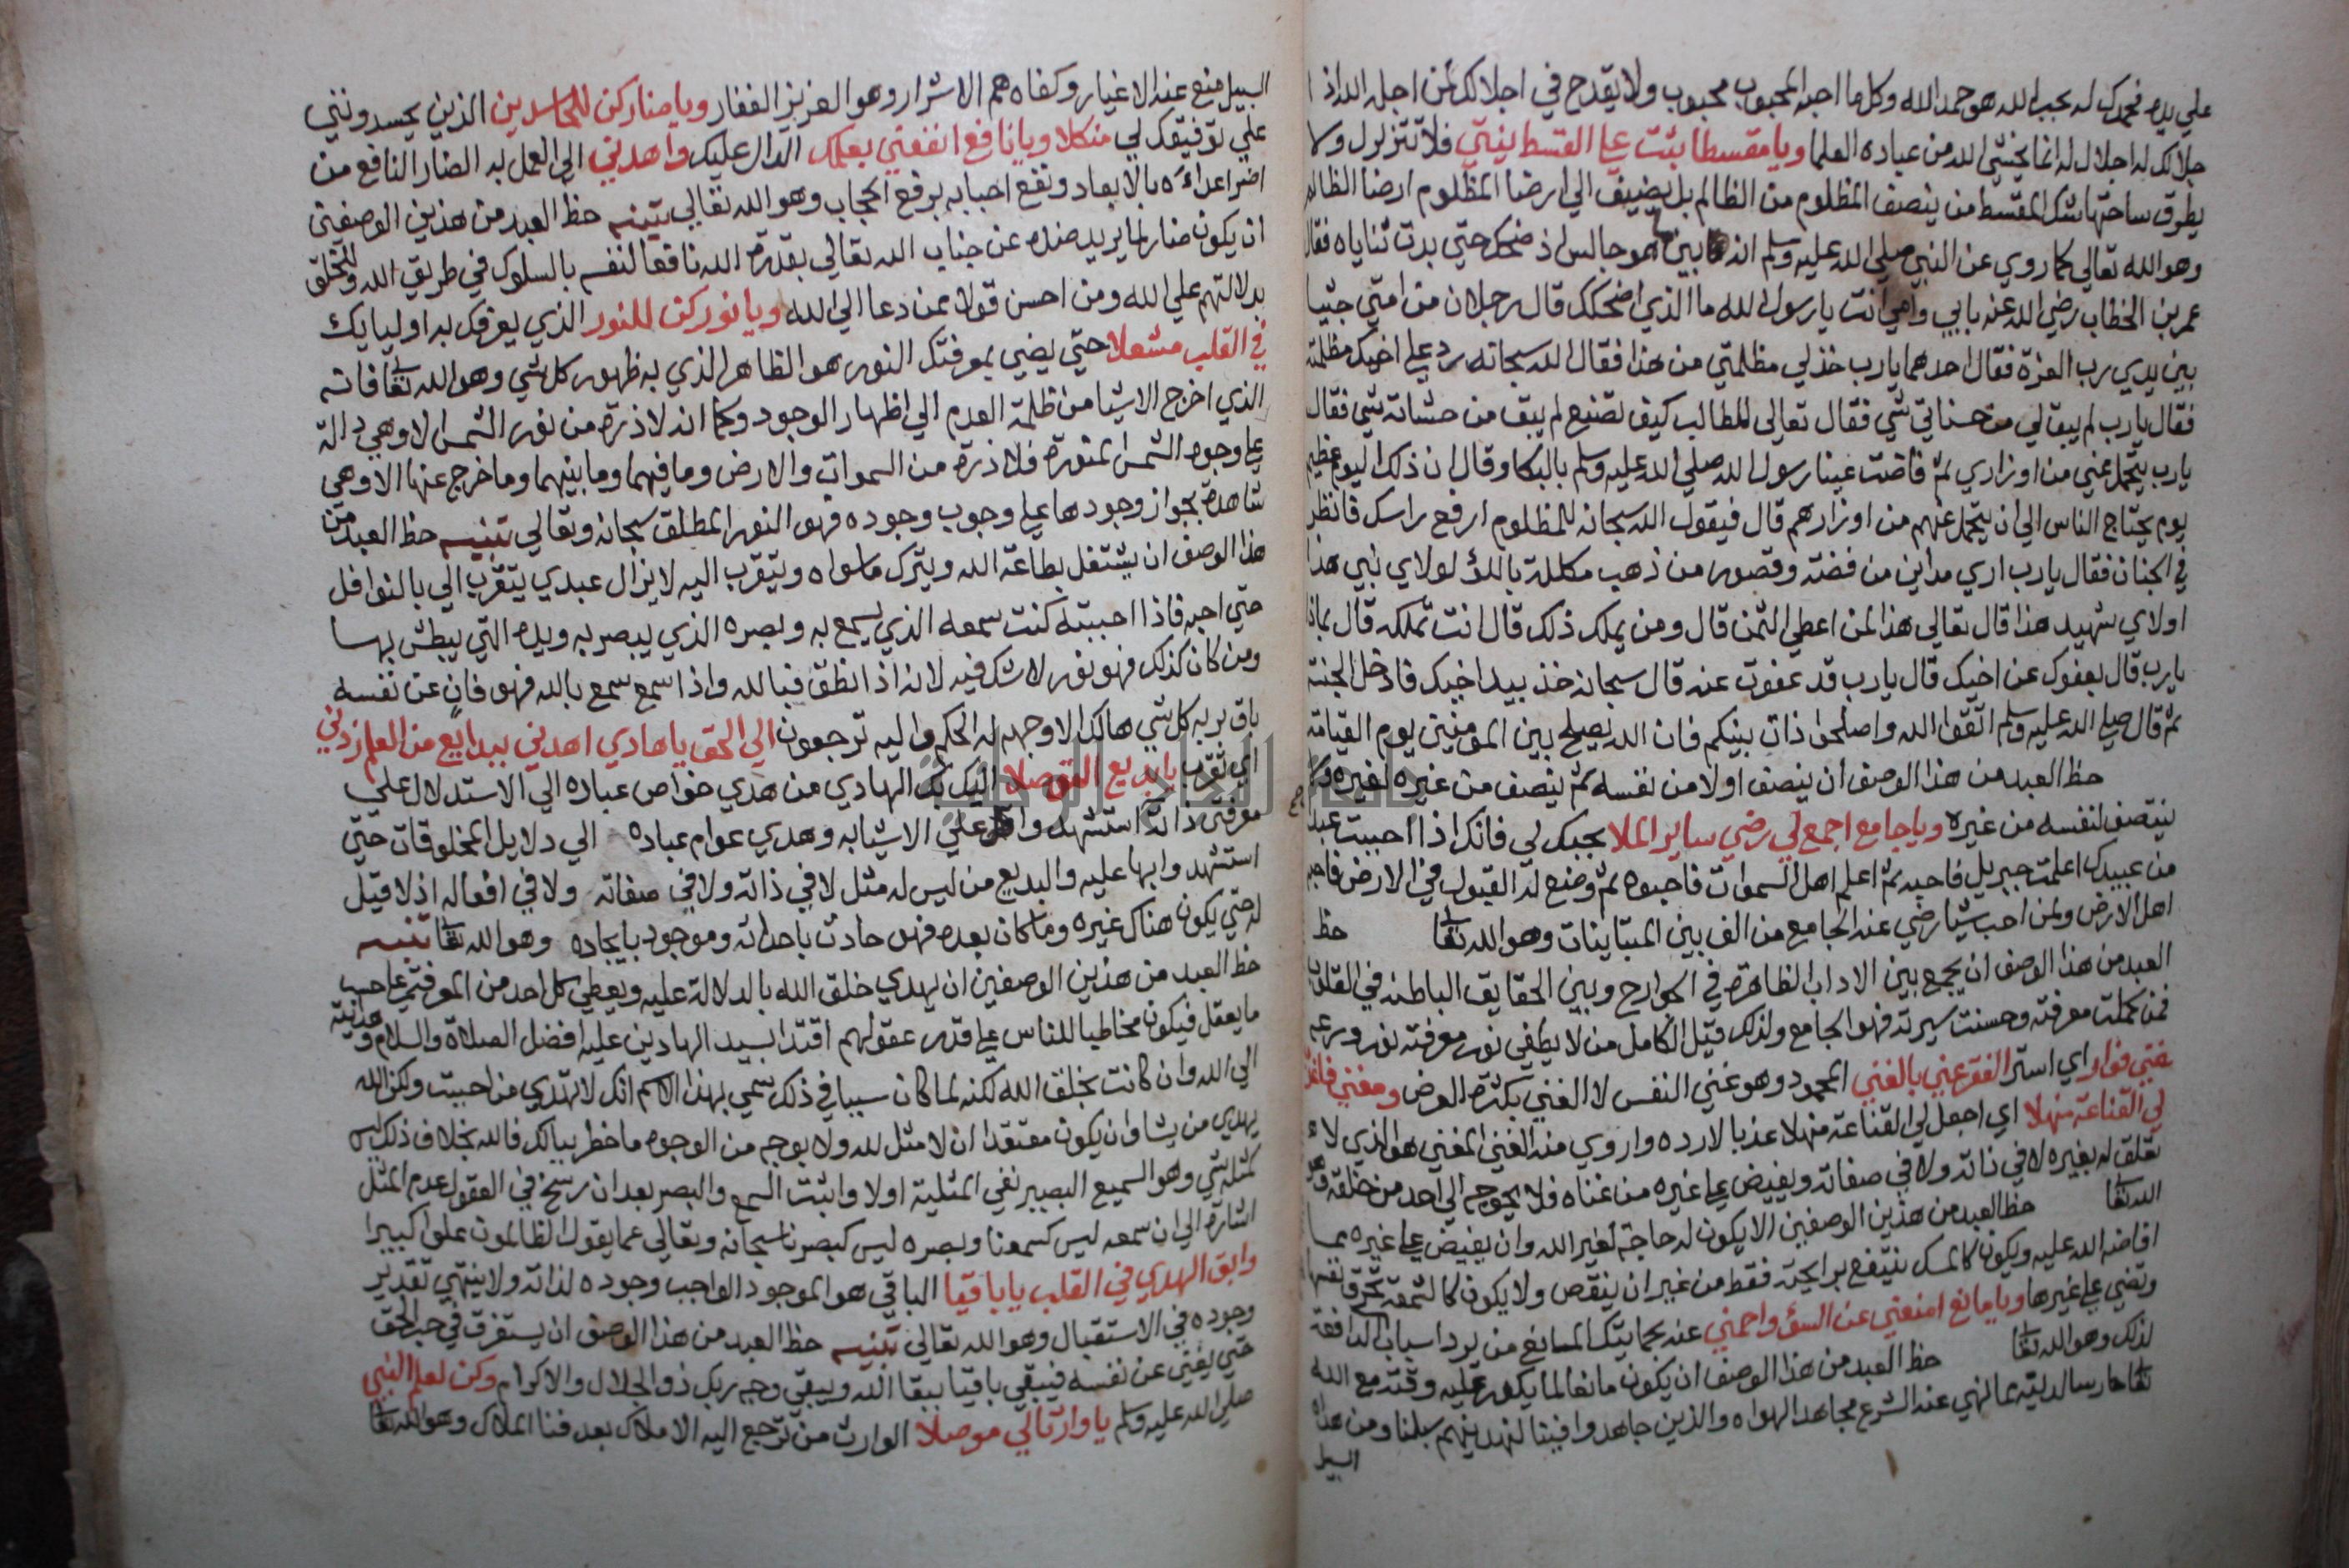 علي يده فحمدك له بحب الله هو حمد الله وكل ما احبه المحبوب محبوب ولا يقدح في اجلالك لمن اجله الله اذ ا
جلالك له اجلال له انما يخشى الله من عباده العلما ويا مقسطا ثبت علي القسط نيتي فلا تتزلزل ولا
يطرق ساحتها شك المقسط من ينصف المظلوم من الظالم بل يضيف الي ارضا المظلوم ارضا الظالم
وهو الله تعالي كما روي عن النبي صلي الله عليه وسلم انه بين هو جالس اذ ضحك حتي بدت ثناياه فقال
عمر بن الخطاب رضي الله عنه بابي وامي انت يا رسول الله ما الذي اضحكك قال رجلان من امتي جثيا
بين يدي رب العزة فقال احدهما يارب خذ لي مظلمتي من هذا فقال الله سبحانه رد علي اخيك مظلمته
فقال يارب لم يبق لي من حسناتي شي فقال تعالى للطالب كيف تصنع لم يبق من حسناته شي فقال
يارب يتحمل عني من اوزاري ثم فاضت عينا رسول الله صلي الله عليه وسلم بالبكا وقال ان ذلك اليوم عظيم
يوم يحتاج الناس الي ان يتحمل عنهم من اوزارهم قال فيقول الله سبحانه للمظلوم ارفع راسك فانظر
في الجنان فقال يارب اري مداين من فضة وقصور من ذهب مكللة باللؤلؤ لاي نبي هذا
او لاي شهيد هذا قال تعالي هذا لمن اعطي الثمن قال ومن يملك ذلك قال انت تملكه قال بماذا
يارب قال بعفوك عن اخيك قال يارب قد عفوت عنه قال سبحانه خذ بيد اخيك فادخل الجنة
ثم قال صلي الله عليه وسلم اتقوا الله واصلحوا ذات بينكم فان الله يصلح بين المومنين يوم القيامة
حظ العبد من هذا الوصف ان ينصف اولا من نفسه ثم ينصف من غيره لغيره ولا
ينتصف لنفسه من غيره ويا جامع اجمع لي رضي ساير الملا بحبك لي فانك اذا احببت عبدا
من عبيدك اعلمت جبريل فاحبه ثم اعلم اهل السموات فاحبوه ثم وضع له القبول في الارض فاحبه
اهل الارض ومن احب شيا رضي عنه الجامع من الف بين المتباينات وهو الله تعا حظ
العبد من هذا الوصف ان يجمع بين الاداب الظاهرة في الجوارح وبين الحقايق الباطنة في القلوب
فمن كملت معرفته وحسنت سيرته فهو الجامع ولذلك قيل الكامل من لا يطفي نور معرفته نور ورعه
غني فوار اي استر الفقر عني بالغني المحمود وهو غني النفس لا الغني بكثرة العرض ومغني فاغد
لي القناعة منهلا اي اجعل لي القناعة منهلا عذبا لارده واروي منه الغني المغني هو الذي لا
تعلق له بغيره لا في ذاته ولا في صفاته ويفيض علي غيره من غناه فلا يحوجه الي احد من خلقه وهو
الله تعا حظ العبد من هذين الوصفين الا يكون له حاجة لغير الله وان يفيض علي غيره مما
افاضه الله عليه ويكون كالمسك ينتفع برايحته فقط من غير ان ينقص ولا يكون كالشمعة تحرق نفسها
وتضي علي غيرها ويا مانع امنعني عن السؤ واحمني عنه بحمايتك المانع من يرد اسباب المدافعة
لذلك وهو الله تعا حظ العبد من هذا الوصف ان يكون مانعا لما يكدر عليه وقته مع الله
تعا حارسا لدينه مما نهي عنه الشرع مجاهدا لهواه والذين جاهدوا فينا لنهدينهم سبلنا ومن هداه
السبيل
السبيل منع عنه الاغيار وكفاه هم الاشرار وهو العزيز الغفار ويا ضار كن للحاسدين الذين يحسدونني
علي توفيقك لي منكلا ويا نافع انفعني بعلمك الدال عليك واهدني الي العمل به الضار النافع من
اضر اعداءه بالابعاد ونفع احبابه برفع الحجاب وهو الله تعالي تنبيه حظ العبد من هذين الوصفين
ان يكون ضارا لما يريد صده عن جناب الله تعالي بقدرة الله نافعا لنفسه بالسلوك في طريق الله وللخلق
بدلالتهم علي الله ومن احسن قولا ممن دعا الي الله ويا نور كن للنور الذي يعرفك به اوليايك
في القلب مشعلا حتي يضي بمعرفتك النور هو الظاهر الذي به ظهور كل شي وهو الله تعا فانه
الذي اخرج الاشيا من ظلمة العدم الي اظهار الوجود وكما انه لا ذرة من نور الشمس الا وهي دالة
علي وجود الشمس المنورة فلا ذرة من السموات والارض وما فيهما وما بينهما وما خرج عنها الا وهي
شاهدة بجواز وجودها علي وجوب وجوده فهو النور المطلق سبحانه وتعالي تنبيه حظ العبد من
هذا الوصف ان يشتغل بطاعة الله ويترك ما سواه ويتقرب اليه لا يزال عبدي يتقرب الي بالنوافل
حتي احبه فاذا احببته كنت سمعه الذي يسمع به وبصره الذي يبصر به ويده التي يبطش بها
ومن كان كذلك فهو نور لا شك فيه لانه اذا نطق فبالله واذا سمع سمع بالله فهو فان عن نفسه
باق بربه كل شي هالك الا وجهه له الحكم واليه ترجعون الي الحق يا هادي اهدني ببدايع من العلم زدني
اي تقرب يا بديع التوصلا اليك بك الهادي من هدي خواص عباده الي الاستدلال علي
معرفتي ذاته استشهدوا علي الاشيا به وهدي عوام عباده الي دلايل المخلوقات حتي
استشهدوا بها عليه والبديع من ليس له مثل لا في ذاته ولا في صفاته ولا في افعاله اذ لا قبل
له حتي يكون هناك غيره وما كان بعده فهو حادث باحداثه وموجود بايجاده وهو الله تعا تنبيه
حظ العبد من هذين الوصفين ان يهدي خلق الله بالدلالة عليه ويعطي كل احد من المعرفة علي حسب
ما يعقل فيكون مخاطبا للناس علي قدر عقولهم اقتدا بسيد الهادين عليه افضل الصلاة والسلام وهدايته
الي الله وان كانت بخلق الله لكنه لما كان سببا في ذلك سمي بهذا الاسم انك لا تهدي من احببت ولكن الله
يهدي من يشا وان يكون معتقدا ان لا مثل لله ولا بوجه من الوجوه ما خطر ببالك فالله بخلاف ذلك ليس
كمثله شي وهو السميع البصير نفي المثلية اولا واثبت السمع والبصر بعد ان رسخ في العقول عدم المثل
اشارة الي ان سمعه ليس كسمعنا وبصره ليس كبصرنا سبحانه وتعالي عما يقول الظالمون علوا كبيرا
وابق الهدي في القلب يا باقيا الباقي هو الموجود الواجب وجوده لذاته ولا ينتهي تقدير
وجوده في الاستقبال وهو الله تعالي تنبيه حظ العبد من هذا الوصف ان يستغرق في حب الحق
حتي يفني عن نفسه فيبقي باقيا ببقا الله ويبقي وجه ربك ذو الجلال والاكرام وكن لعلم النبي
صلي الله عليه وسلم يا وارثا لي موصلا الوارث من ترجع اليه الاملاك بعد فنا الملاك وهو الله تعا